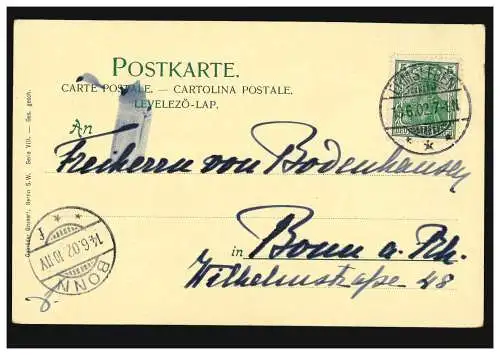 POSTKARTE.
CARTE POSTALE. — CARTOLINA POSTALE.
LEVELEZŐ-LAP.
An
Freiherrn von Bodenhausen
in Bonn a. Rh.
Wilhelmstraße 48
BONN
14.6.02.10-11V
* * f
.6.02.7-8N
Berlin S.W. Serie VIII. — Ges. gesch.